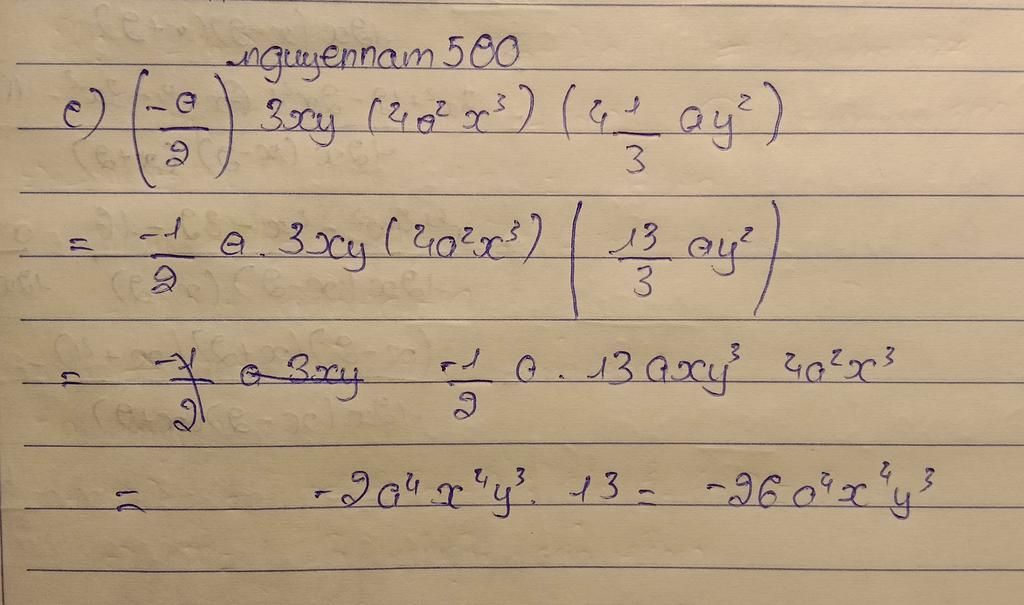 nguyennam500
e) (-a/2) 3xy (4a² x³) (4 1/3 ay²)
= -1/2 a. 3xy (4a²x³) (13/3 ay²)
= -1/2 a 3xy -1/2 a . 13axy³ 4a²x³
= -2a⁴x⁴y³. 13 = -26a⁴x⁴y³